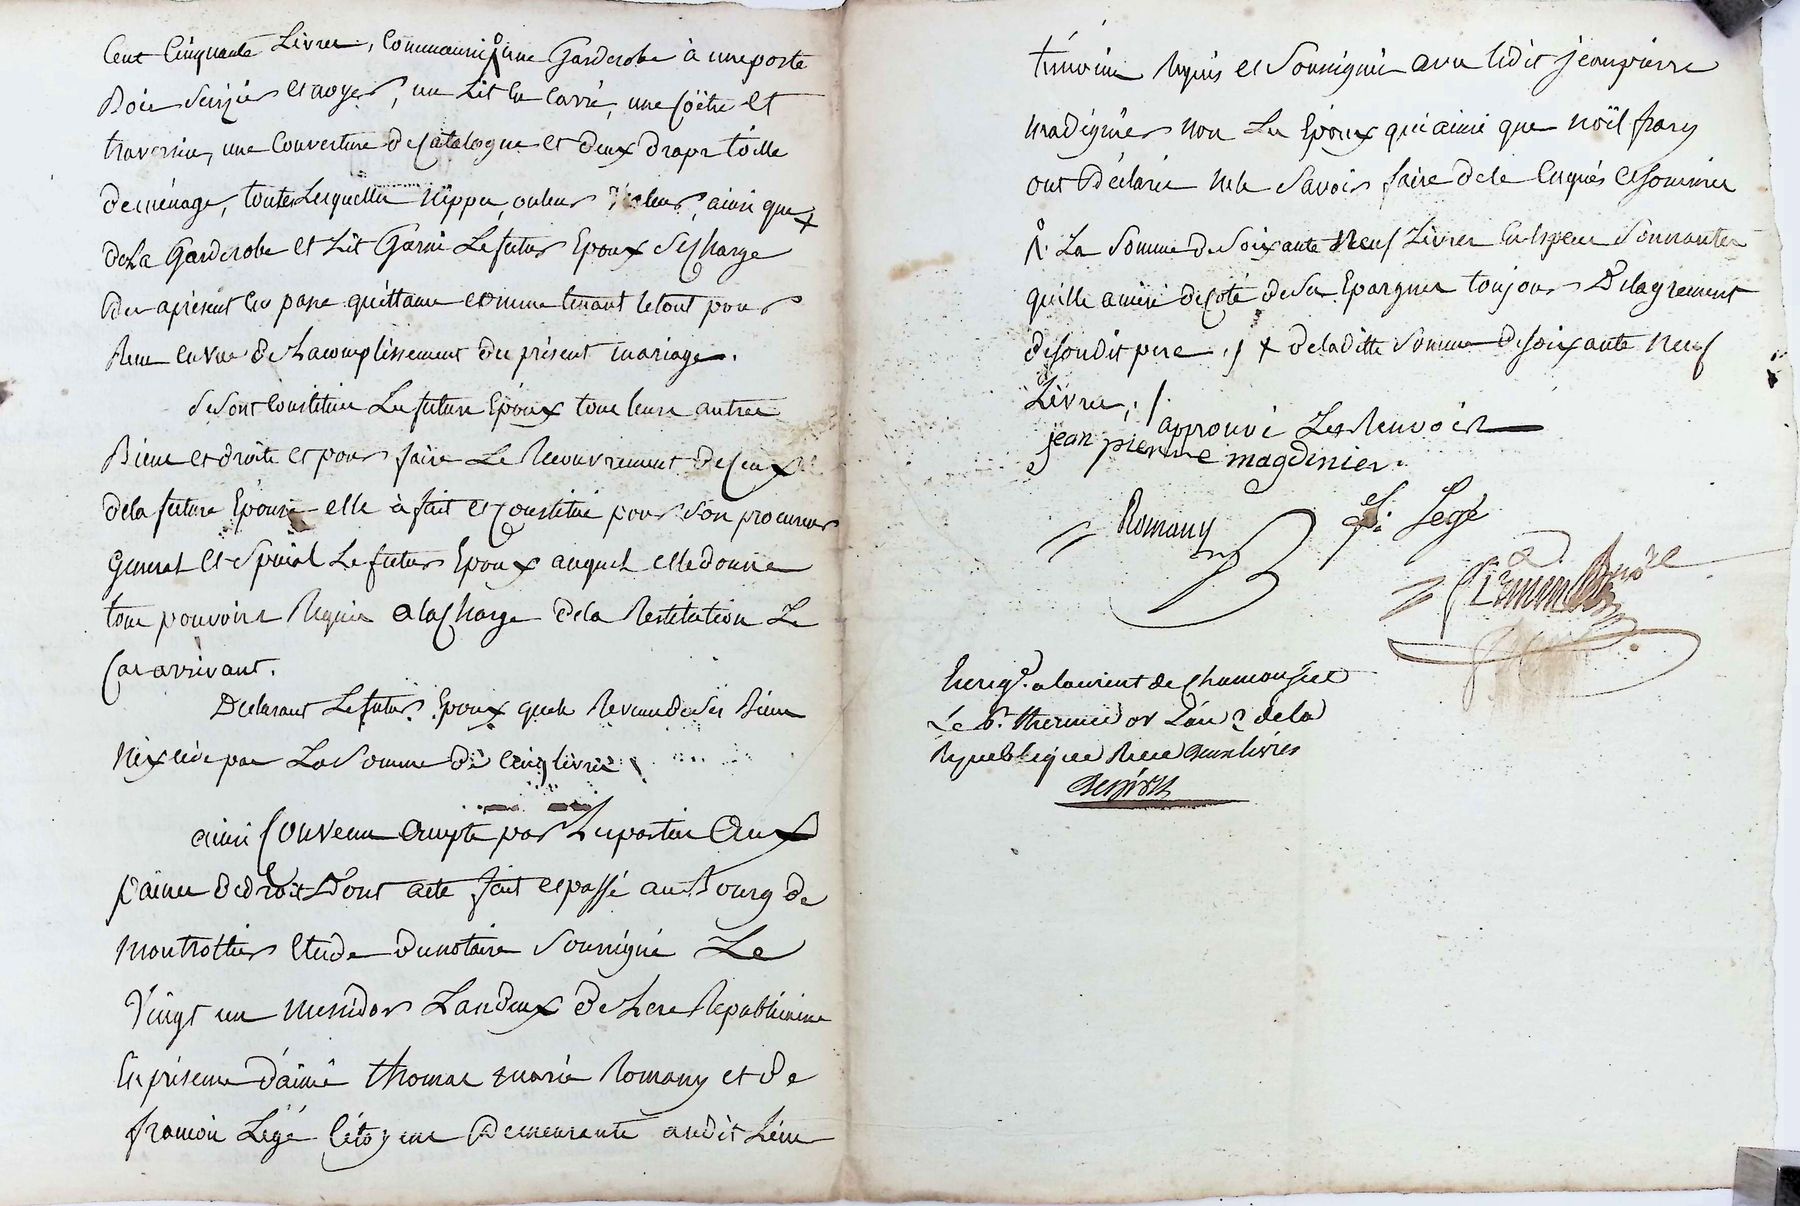 Cent Cinquante Livres, comme aussi une Garderobe à une porte
Bois Serizier et noyer, un Lit en Carré, une Coëtre et
traversin, une Couverture de Catalogne et deux draps toille
de ménage, toutes Lesquelles Nippes, ou leur valeur, ainsi que
de La Garderobe et Lit Garni Le futur Epoux Se Charge
des apresent en passe quittance comme tenant le tout pour
Reçu en vue de Lacomplissement du présent mariage.
Se sont Constitués Les futurs Epoux tous leurs autres
Biens et droits et pour faire Le Recouvrement de Ceux
de la future Epouse elle à fait et Constitué pour Son procureur
General et Spécial Le futur Epoux auquel elle donne
tous pouvoirs Requis a la Charge de la Restitution Le
Cas arrivant.
Declarant Le futur Epoux que le Revenu de Ses Biens
N'éxcède pas La Somme de Cinq livres
ainsi Convenu accepté par Les parties aux
peines de droit Dont acte fait et passé au Bourg de
Montrottier Etude du notaire Soussigné Le
Vingt un Messidor L'an deux de L'ere Republicaine
En présence d'aimé thomas marie Romany et de
francois Légé Citoyens Demeurants audit Lieu
témoins Requis et Soussignés avec ledit jean pierre
magdinier non Les Epoux qui ainsi que Noël
ont Déclaré ne le Savoir faire de ce Enquis et Sommés
La Somme de Soixante Neuf Livres En Espece Sonnantes
quelle a mise de Coté de Ses Epargnes toujours De lagrément
de Sondit pere ./ + de laditte Somme de Soixante Neuf
Livres, ./.
approuvé Les Renvois
jean pierre magdinier.
Romany
f. Legé
Enregé. a laurent de Chamousset
Le 6. thermidor L'an 2 de la
Republique Recu deux livres